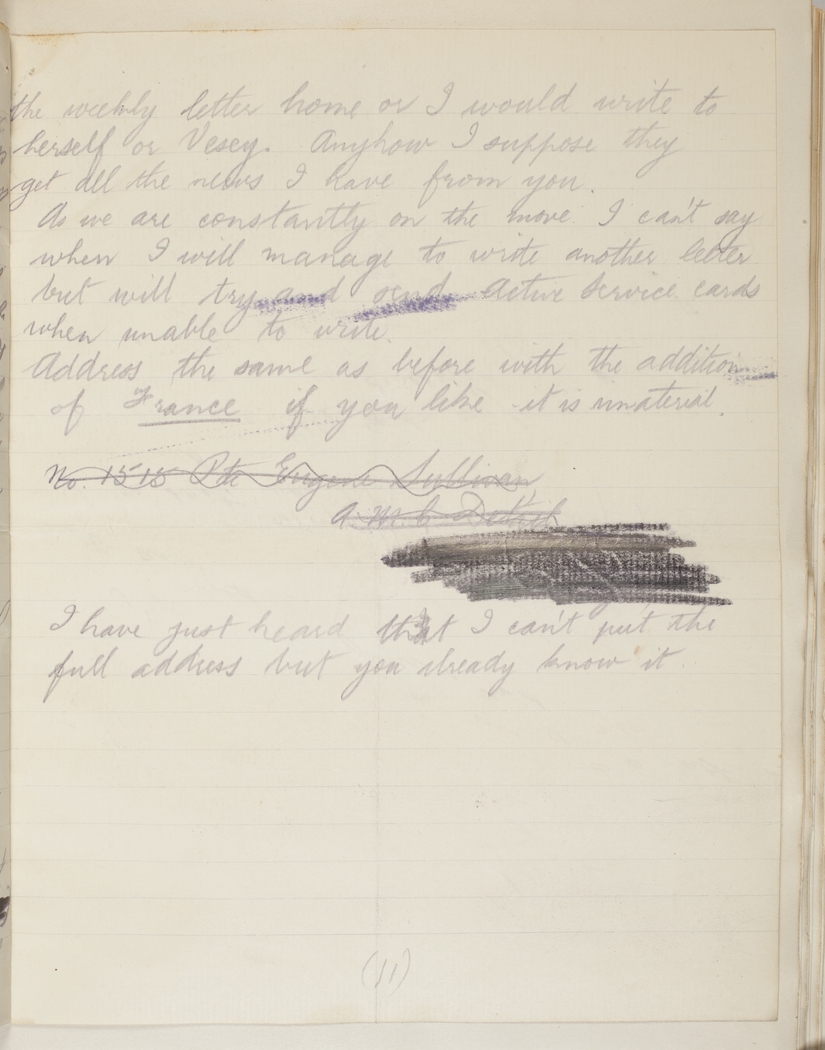 the weekly letter home or I would write to
herself or Vesey. Anyhow I suppose they
get all the news I have from you.
As we are constantly on the move I can't say
when I will manage to write another letter
but will try and send Active Service cards
when unable to write.
Address the same as before with the addition
of France if you like - it is imaterial.
No. 1515 Pte Eugene Sullivan
A.M.C. Details
I have just heard that I can't put the
full address but you already know it.
(11)